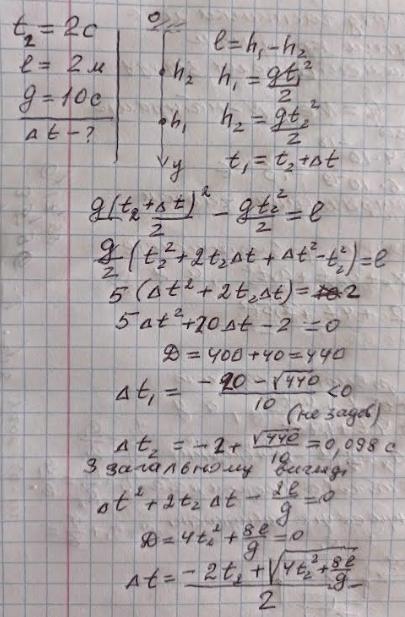 t₂ = 2c
ℓ = 2м
g = 10c
Δt - ?
0
h₂
h₁
y
ℓ = h₁ - h₂
h₁ = gt₁²/2
h₂ = gt₂²/2
t₁ = t₂ + Δt
g(t₂ + Δt)²/2 - gt₂²/2 = ℓ
g/2 (t₂² + 2t₂Δt + Δt² - t₂²) = ℓ
5 (Δt² + 2t₂Δt) = 2
5Δt² + 20Δt - 2 = 0
D = 400 + 40 = 440
Δt₁ = (-20 - √440)/10 < 0
(не задов)
Δt₂ = -2 + √440/10 = 0,098 c
З загальному вигляді
Δt² + 2t₂Δt - 2ℓ/g = 0
D = 4t₂² + 8ℓ/g = 0
Δt = (-2t₂ + √(4t₂² + 8ℓ/g))/2